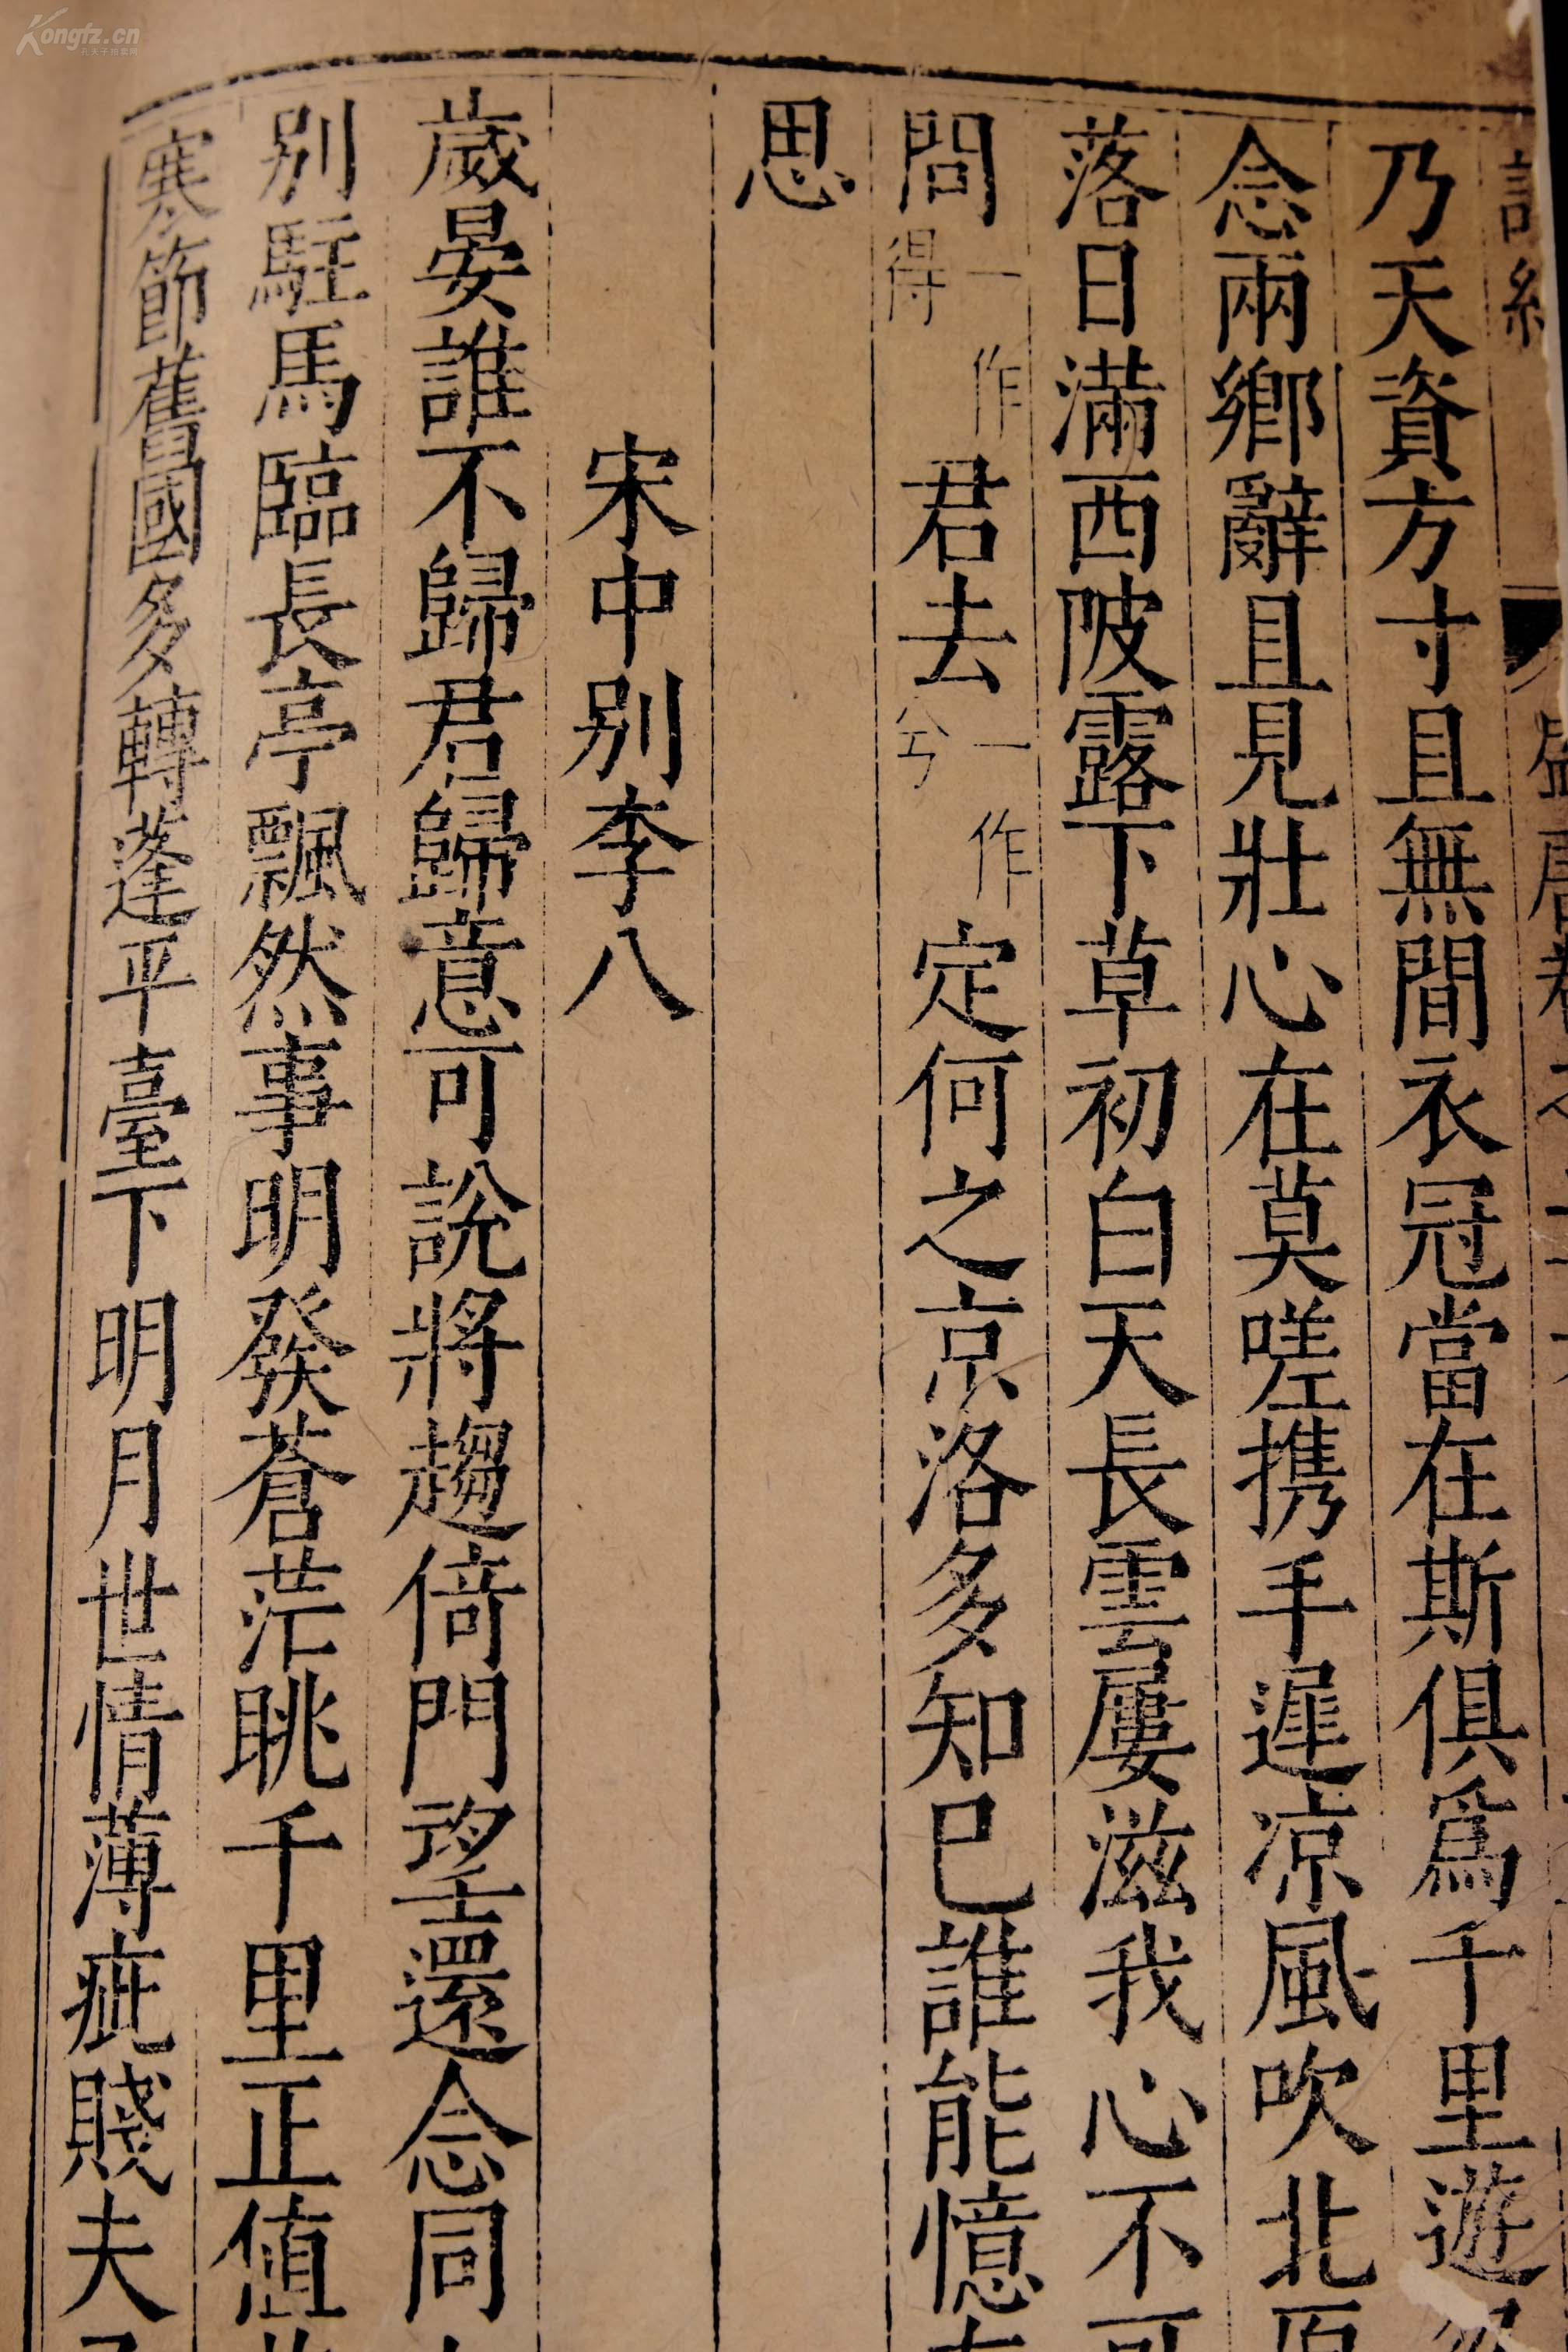 Kongfz.cn
詩紀
盛唐卷之
乃天資方寸且無間衣冠當在斯俱爲千里遊
念兩鄉辭且見壯心在莫嗟携手遲凉風吹北原
落日滿西陂露下草初白天長雲屢滋我心不可
問一作得君去一作兮定何之京洛多知已誰能憶
思
宋中別李八
歲晏誰不歸君歸意可說將趨倚門望還念同
別駐馬臨長亭飄然事明發蒼茫眺千里正值
寒節舊國多轉蓬平臺下明月世情薄疵賤夫